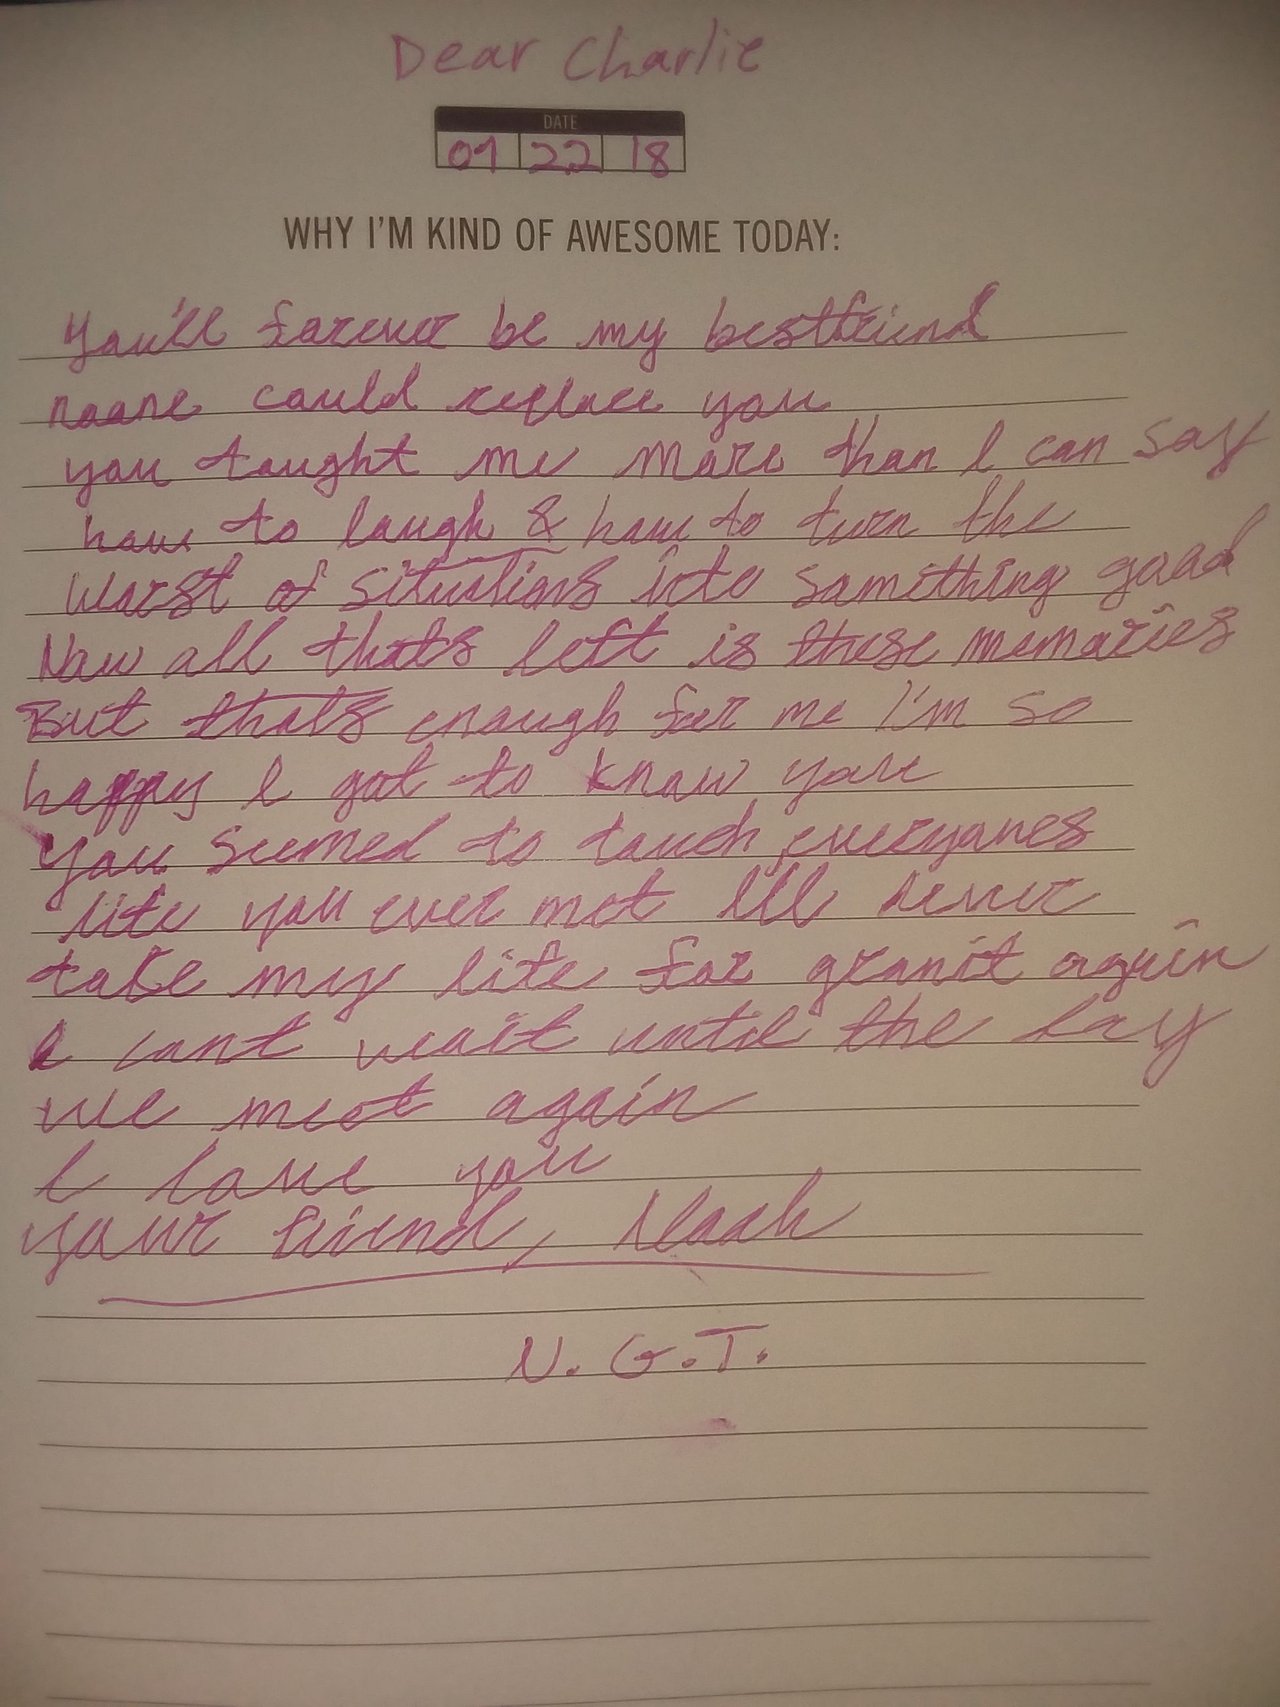 Dear Charlie
DATE
09 22 18
WHY I'M KIND OF AWESOME TODAY:
You'll forever be my bestfriend
noone could replace you
you taught me more than I can say
how to laugh & how to turn the
worst of situations into something good
Now all thats left is these memories
But thats enough for me I'm so
happy I got to know you
you seemed to touch everyones
life you ever met I'll never
take my life for granit again
I cant wait until the day
we meet again
I love you
your friend, Noah
N.G.T.